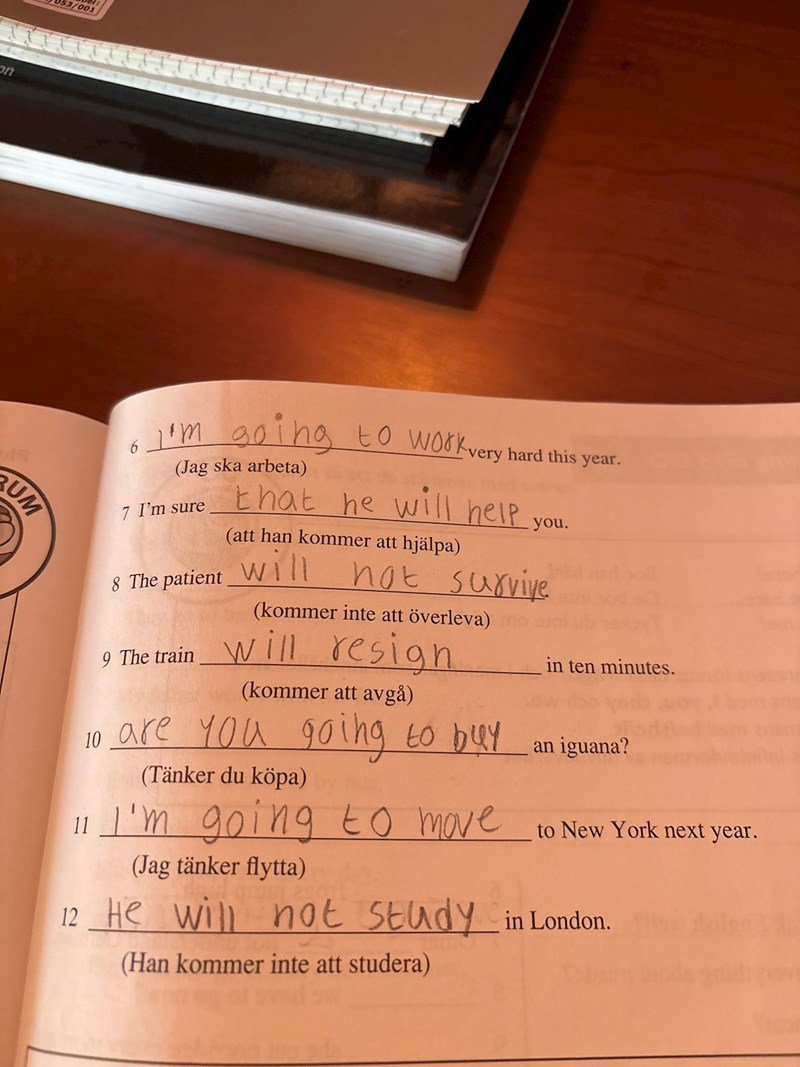 053/001
on
RUM
6 I'm going to work very hard this year.
(Jag ska arbeta)
7 I'm sure that he will help you.
(att han kommer att hjälpa)
8 The patient will not survive.
(kommer inte att överleva)
9 The train will resign in ten minutes.
(kommer att avgå)
10 are you going to buy an iguana?
(Tänker du köpa)
11 I'm going to move to New York next year.
(Jag tänker flytta)
12 He will not study in London.
(Han kommer inte att studera)